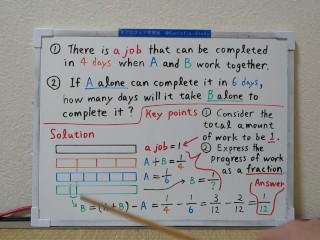 ① There is a job that can be completed
in 4 days when A and B work together.
② If A alone can complete it in 6 days,
how many days will it take B alone to
complete it?
Key points
① Consider the
total amount
of work to be 1.
② Express the
progress of work
as a fraction.
Solution
a job = 1
A + B = 1/4
A = 1/6
B = 1/?
Answer
B = (A+B) - A = 1/4 - 1/6 = 3/12 - 2/12 = 1/12